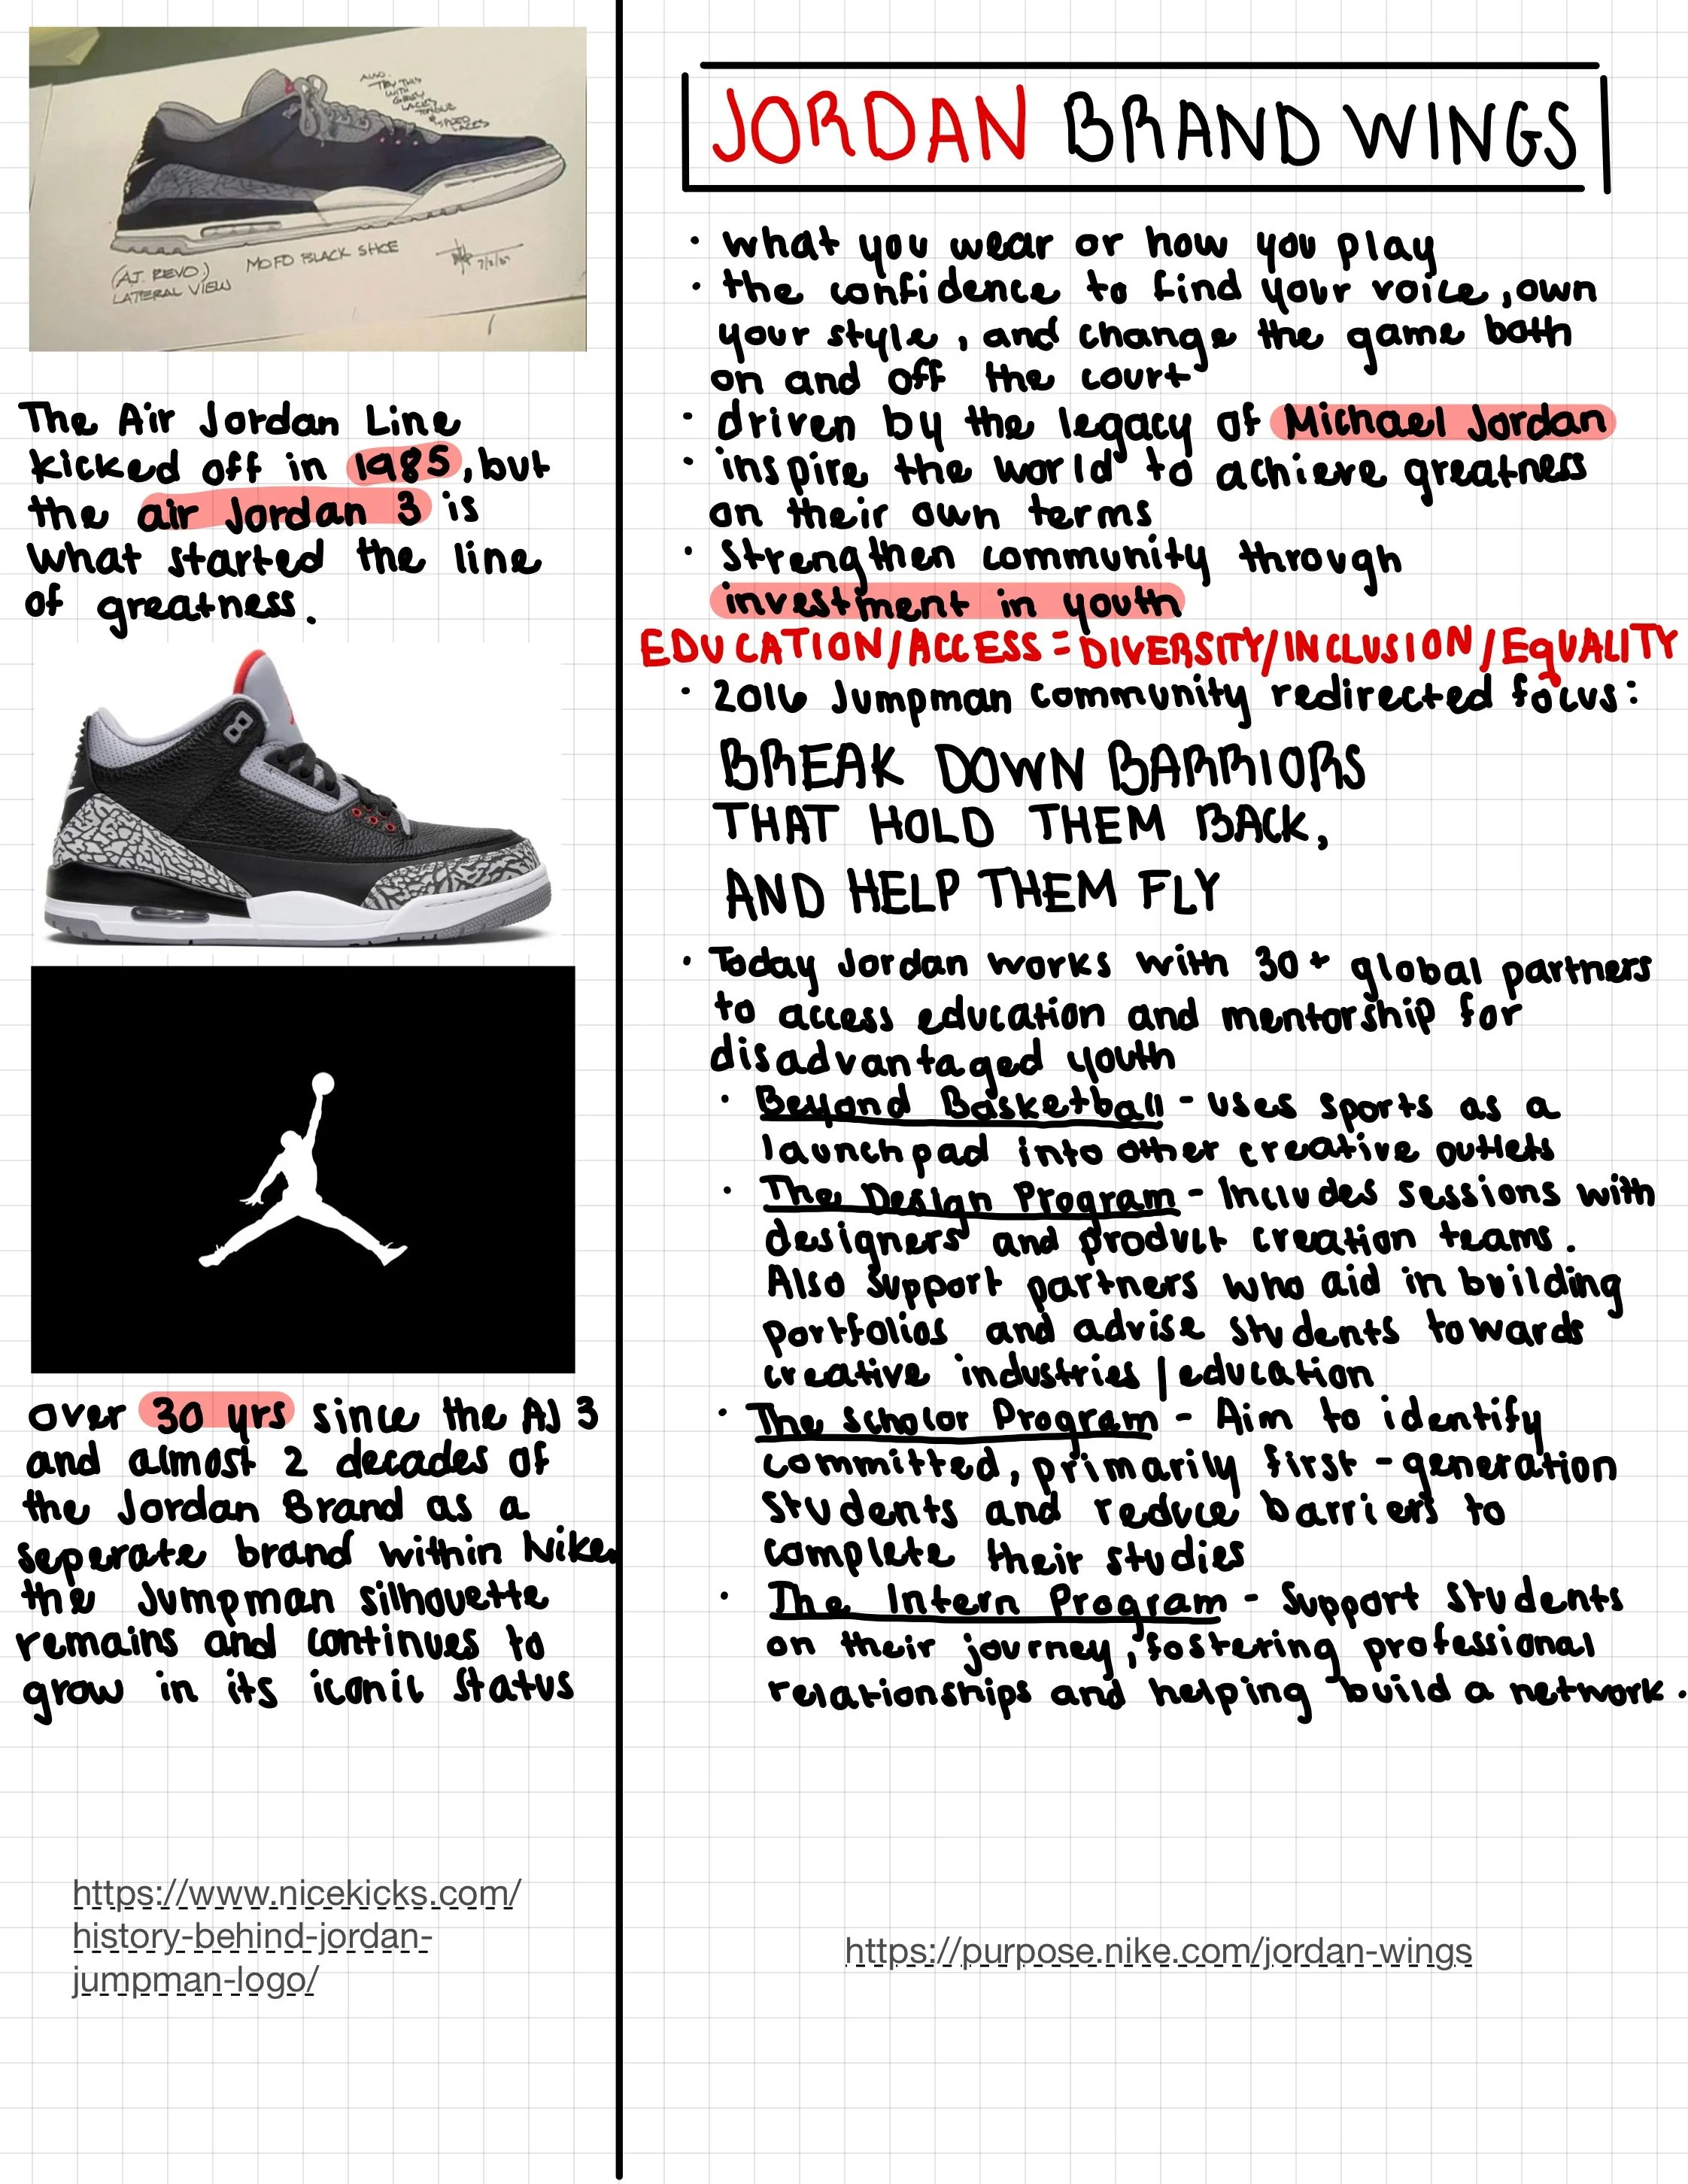 ALSO
TRY THIS
WITH
GREY
LACES
TONGUE
&
SPEED
LACES
MOFO BLACK SHOE
7/2/87
(AJ. REVO)
LATERAL VIEW
The Air Jordan Line
kicked off in 1985, but
the air Jordan 3 is
what started the line
of greatness.
over 30 yrs since the AJ 3
and almost 2 decades of
the Jordan Brand as a
seperate brand within Nike.
the Jumpman silhouette
remains and continues to
grow in its iconic status
https://www.nicekicks.com/
history-behind-jordan-
jumpman-logo/
JORDAN BRAND WINGS
• what you wear or how you play
• the confidence to find your voice, own
your style, and change the game both
on and off the court
• driven by the legacy of Michael Jordan
• inspire the world to achieve greatness
on their own terms
• strengthen community through
investment in youth
EDUCATION/ACCESS = DIVERSITY/INCLUSION/EqUALITY
• 2016 Jumpman community redirected focus:
BREAK DOWN BARRIORS
THAT HOLD THEM BACK,
AND HELP THEM FLY
• Today Jordan works with 30+ global partners
to access education and mentorship for
disadvantaged youth
• Beyond Basketball - uses sports as a
launchpad into other creative outlets
• The Design Program - Includes sessions with
designers and product creation teams.
Also support partners who aid in building
portfolios and advise students towards
creative industries / education
• The Scholar Program - Aim to identify
committed, primarily first-generation
students and reduce barriers to
complete their studies
• The Intern Program - Support students
on their journey, fostering professional
relationships and helping build a network.
https://purpose.nike.com/jordan-wings